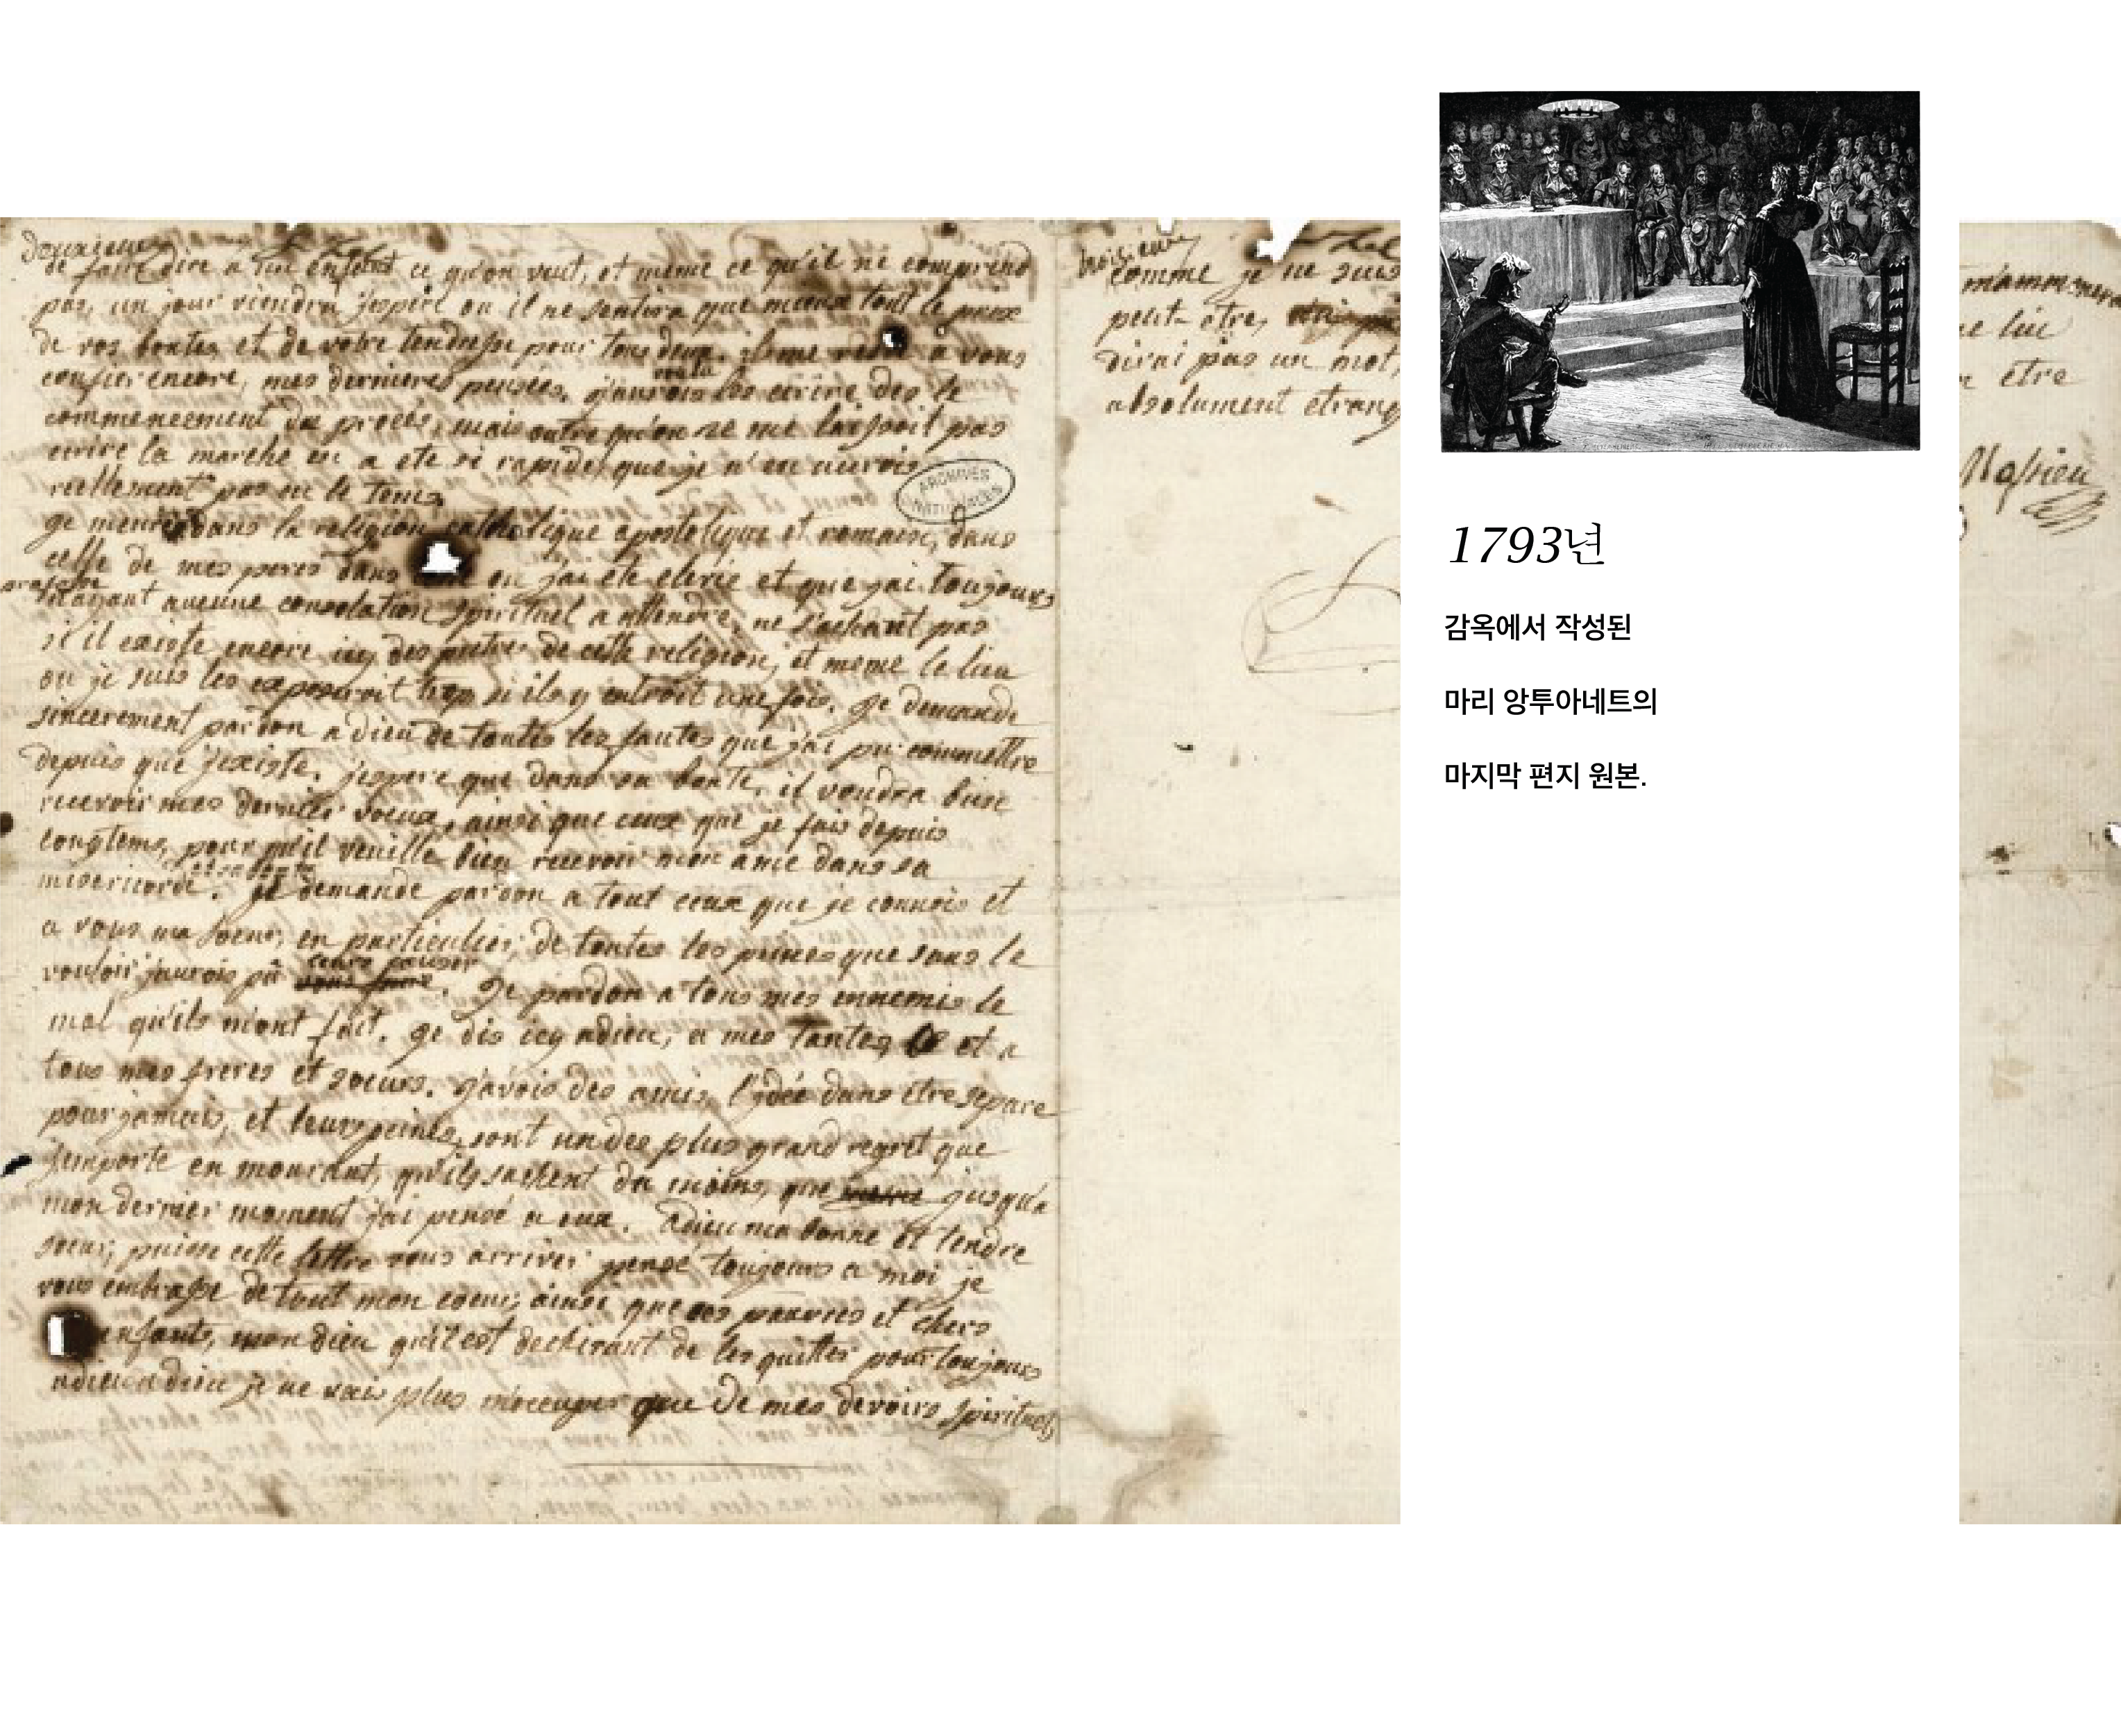 douxieme
de faire dire a un enfant ce qu'on veut, et meme ce qu'il ne comprend
pas, un jour viendra j'espere ou il ne sentira que mieux tout le prix
de vos bontes et de votre tendresse pour tous deux. il me reste a vous
confier encore, mes dernieres pensées. j'aurois voulu les ecrire des le
commencement du procès, mais outre qu'on ne me laissoit pas
ecrire la marche en a ete si rapide, que je n'en aurois
reellement pas eu le tems.
ARCHIVES
NATIONALES
je meurs dans la religion catholique apostolique et romaine, dans
celle de mes peres dans ou j'ai ete elevée et que j'ai toujours
professée
n'ayant aucune consolation spirituel a attendre, ne sachant pas
si il existe encore icy des pretres de cette religion, et meme le lieu
ou je suis les exposeroit trop si ils y entroit une fois. je demande
sincerement pardon a dieu de toutes les fautes que j'ai pu commettre
depuis que j'existe. j'espere que dans sa bonté, il voudra bien
recevoir mes derniers voeux, ainsi que ceux que je fais depuis
longtems, pour qu'il veuille bien recevoir mon ame dans sa
misericorde et sa bonté. je demande pardon a tout ceux que je connois et
a vous ma soeur, en particulier, de toutes les peines que sans le
vouloir j'aurois pû vous causer. je pardon a tous mes ennemis le
mal qu'ils m'ont fait. je dis icy adieu, a mes tantes et a
tous mes freres et soeurs. j'avois des amis, l'idée d'en etre separe
pour jamais, et leurs peines, sont un des plus grand regret que
j'emporte en mourant, qu'ils sachent du moins, que jusqu'a
mon dernier moment j'ai pensé a eux. adieu ma bonne et tendre
soeur, puisse cette lettre vous arriver pensé toujours a moi je
vous embrasse de tout mon coeur, ainsi que ces pauvres et chers
enfants, mon dieu qu'il est dechirant de les quitter pour toujours
adieu adieu je ne vais plus m'occuper que de mes devoirs spirituels,
troisieme
comme je ne suis
peut-etre,
dirai pas un mot,
absolument etrang
1793년
감옥에서 작성된
마리 앙투아네트의
마지막 편지 원본.
etre